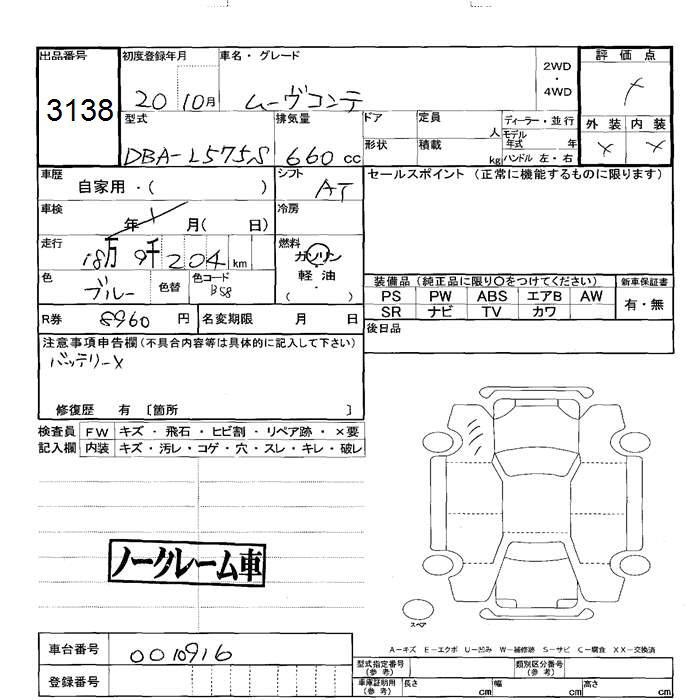 出品番号
3138
初度登録年月
20 10月
車名・グレード
ムーヴコンテ
2WD
・
4WD
評価点
外装 内装
× ×
型式
DBA-L575S
排気量
660 cc
ドア
定員
人
ディーラー・並行
モデル年式 年
形状
積載
kg
ハンドル 左・右
車歴
自家用・( )
シフト
AT
セールスポイント (正常に機能するものに限ります)
車検
年 月( 日)
冷房
走行
18万 9千 204 km
燃料
ガソリン
・
軽油
( )
色
ブルー
色替
色コード
B58
装備品 (純正品に限り○をつけてください)
新車保証書
PS PW ABS エアB AW
SR ナビ TV カワ
有・無
R券
8960 円
名変期限 月 日
後日品
注意事項申告欄 (不具合内容等は具体的に記入して下さい)
バッテリー×
修復歴 有 〔箇所 〕
検査員 FW キズ・飛石・ヒビ割・リペア跡・×要
記入欄 内装 キズ・汚レ・コゲ・穴・スレ・キレ・破レ
ノークレーム車
スペア
A-キズ E-エクボ U-凹み W-補修跡 S-サビ C-腐食 XX-交換済
車台番号
0010916
登録番号
型式指定番号
(参考)
類別区分番号
(参考)
車庫証明用
(参考)
長さ cm 幅 cm 高さ cm